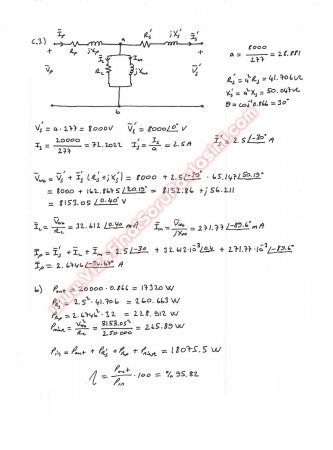 c.3) I̅p Rp jXp a Rs' jXs' I̅s'
+ I̅c I̅m +
V̅p Rc jXm V̅s'
b
a = 8000/277 = 28.881
Rs' = a²Rs = 41.706 Ω
Xs' = a²Xs = 50.047 Ω
θ = cos⁻¹ 0.866 = 30°
Vs' = a.277 = 8000V V̅s' = 8000∠0° V
Is = 20000/277 = 72.2022 Is' = Is/a = 2.5 A I̅s' = 2.5∠-30° A
V̅ab = V̅s' + I̅s' (Rs' + jXs') = 8000 + 2.5∠-30° . 65.147∠50.19°
= 8000 + 162.8675∠20.19° = 8152.86 + j56.211
= 8153.05∠0.40° V
I̅c = V̅ab/Rc = 32.612∠0.40 mA I̅m = V̅ab/jXm = 271.77∠-89.6° mA
I̅p = I̅s' + I̅c + I̅m = 2.5∠-30 + 32.612.10⁻³∠0.4 + 271.77.10⁻³∠-89.6°
I̅p = 2.6746 A
b) Pout = 20000.0.866 = 17320 W
PRs' = 2.5².41.706 = 260.663 W
PRp = 2.6746².32 = 228.912 W
Pcore = Vab²/Rc = 8153.05²/250000 = 265.89 W
Pin = Pout + PRs' + PRp + Pcore = 18075.5 W
η = Pout/Pin .100 = %95.82